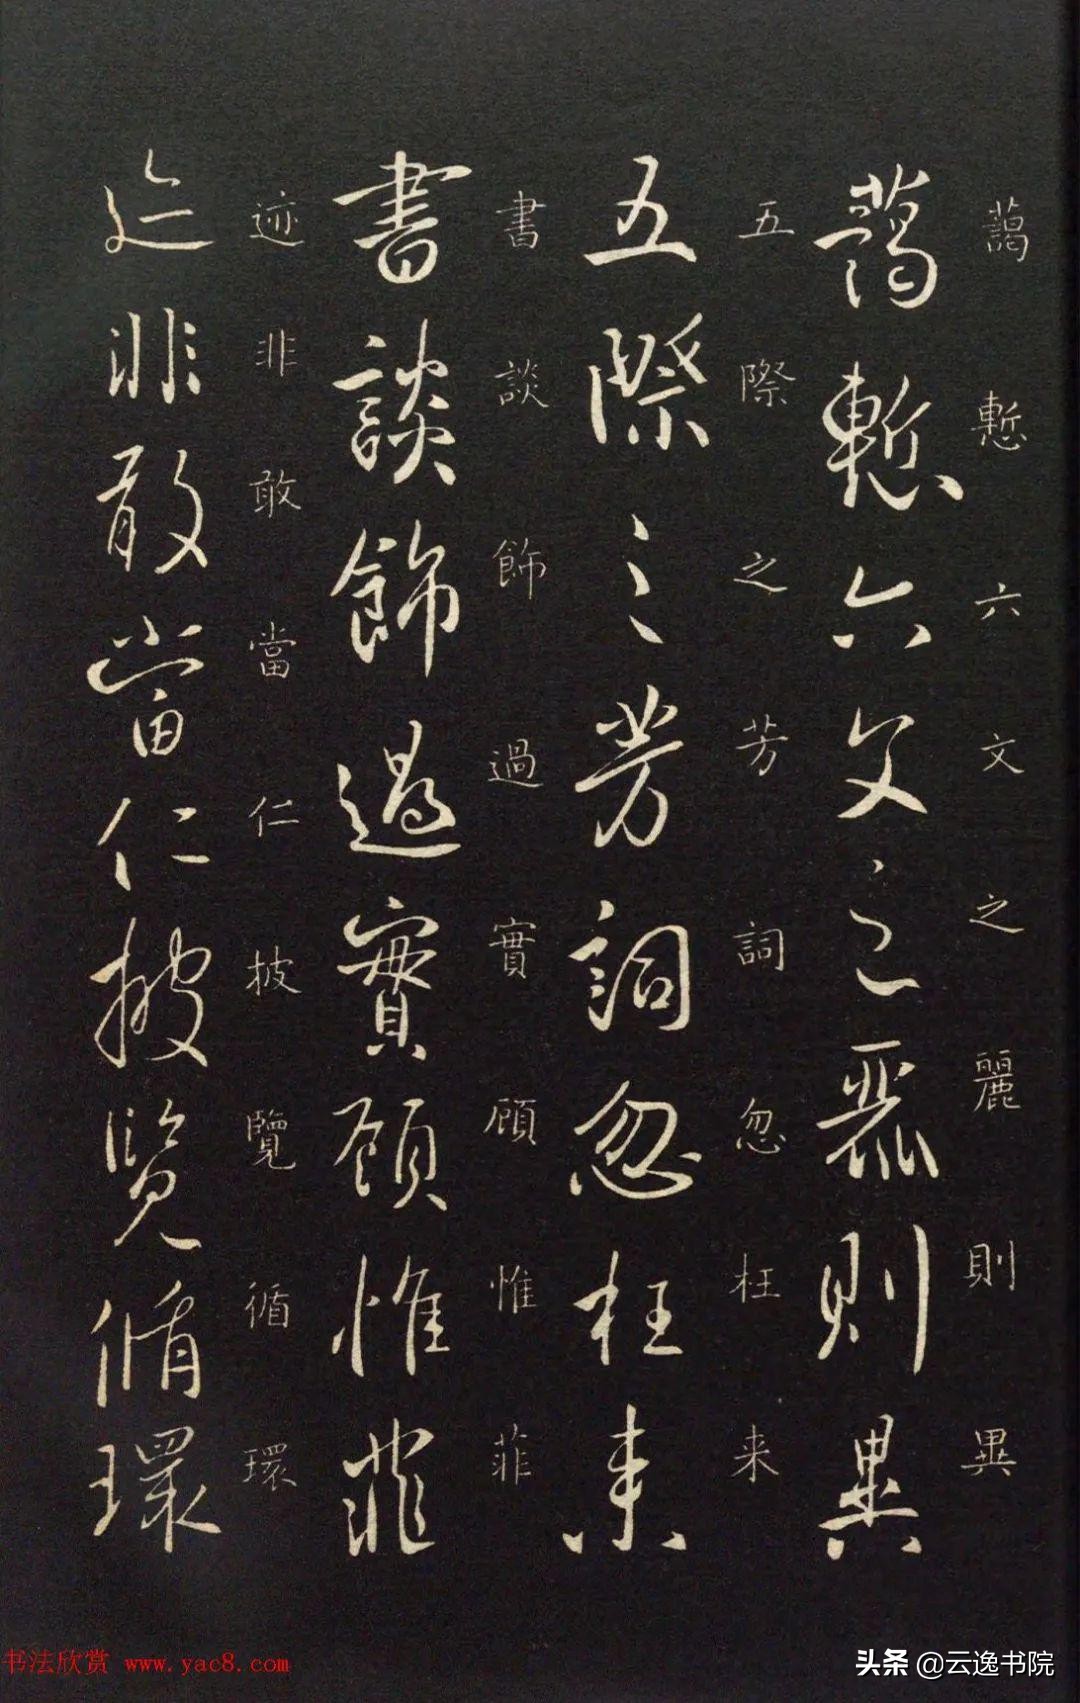 藹慙六文之麗則異
藹慙六文之麗則異
五際之芳詞忽枉来
五際之芳詞忽枉来
書談飾過實顧惟菲
書談飾過實顧惟菲
迹非敢當仁披覽循環
迹非敢當仁披覽循環
书法欣赏 www.yac8.com
头条 @云逸书院